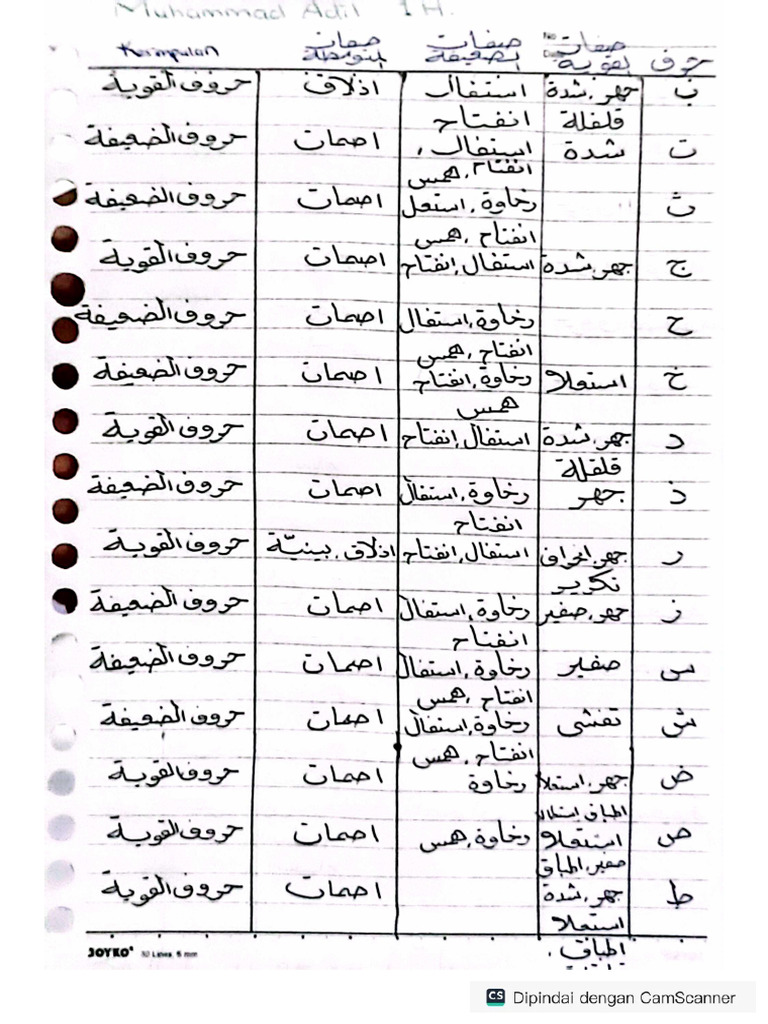 Muhammad Adil 1H.
حروف صفات القوية صفات الضعيفة صفات المتوسطة Kesimpulan
ب جهر، شدة استفال اذلاق حروف القوية
قلقلة انفتاح
ت شدة استفال، اصمات حروف الضعيفة
انفتاح، همس
ث رخاوة، استفل اصمات حروف الضعيفة
انفتاح، همس
ج جهر، شدة استفال، انفتاح اصمات حروف القوية
ح رخاوة، استفال اصمات حروف الضعيفة
انفتاح، همس
خ استعلا رخاوة، انفتاح اصمات حروف الضعيفة
همس
د جهر، شدة استفال، انفتاح اصمات حروف القوية
قلقلة
ذ جهر رخاوة، استفال اصمات حروف الضعيفة
انفتاح
ر جهر، انحراف استفال، انفتاح اذلاق، بينيّة حروف القوية
تكرير
ز جهر، صفير رخاوة، استفال اصمات حروف الضعيفة
انفتاح
س صفير رخاوة، استفال اصمات حروف الضعيفة
انفتاح، همس
ش تفشى رخاوة، استفال اصمات حروف الضعيفة
انفتاح، همس
ض جهر، استعلا رخاوة اصمات حروف القوية
اطباق
ص استعلا رخاوة، همس اصمات حروف القوية
صفير، اطباق
ط جهر، شدة اصمات حروف القوية
استعلا
اطباق،
JOYKO 30 Lines, 6 mm
CS Dipindai dengan CamScanner